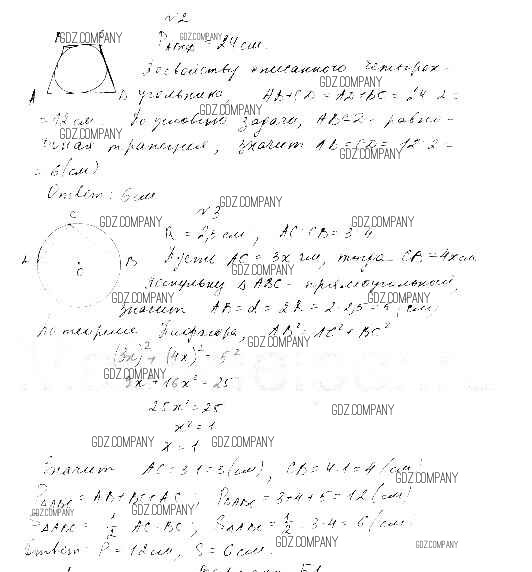 №2
P = 24 см.
По свойству описанного четырёх-
угольника AB+CD = AD+BC = 24:2=
= 12 см. По условию задачи, ABCD - равно-
чная трапеция, значит AB=CD= 12:2=
= 6(см)
Ответ: 6 см
№3
R = 2,5 см, AC:CB = 3:4
Пусть AC = 3x см, тогда CB = 4x см
поскольку Δ ABC - прямоугольный,
значит AB = d = 2R = 2·2,5 = 5 (см)
По теореме Пифагора, AB² = AC² + BC²
(3x)² + (4x)² = 5²
9x² + 16x² = 25
25x² = 25
x² = 1
x = 1
Значит AC = 3·1 = 3(см), CB = 4·1 = 4 (см)
PΔABC = AB+BC+AC, PΔABC = 3+4+5 = 12(см)
SΔABC = 1/2 AC·BC, SΔABC = 1/2·3·4 = 6(см
Ответ: P = 12 см, S = 6 см.
GDZ.COMPANY